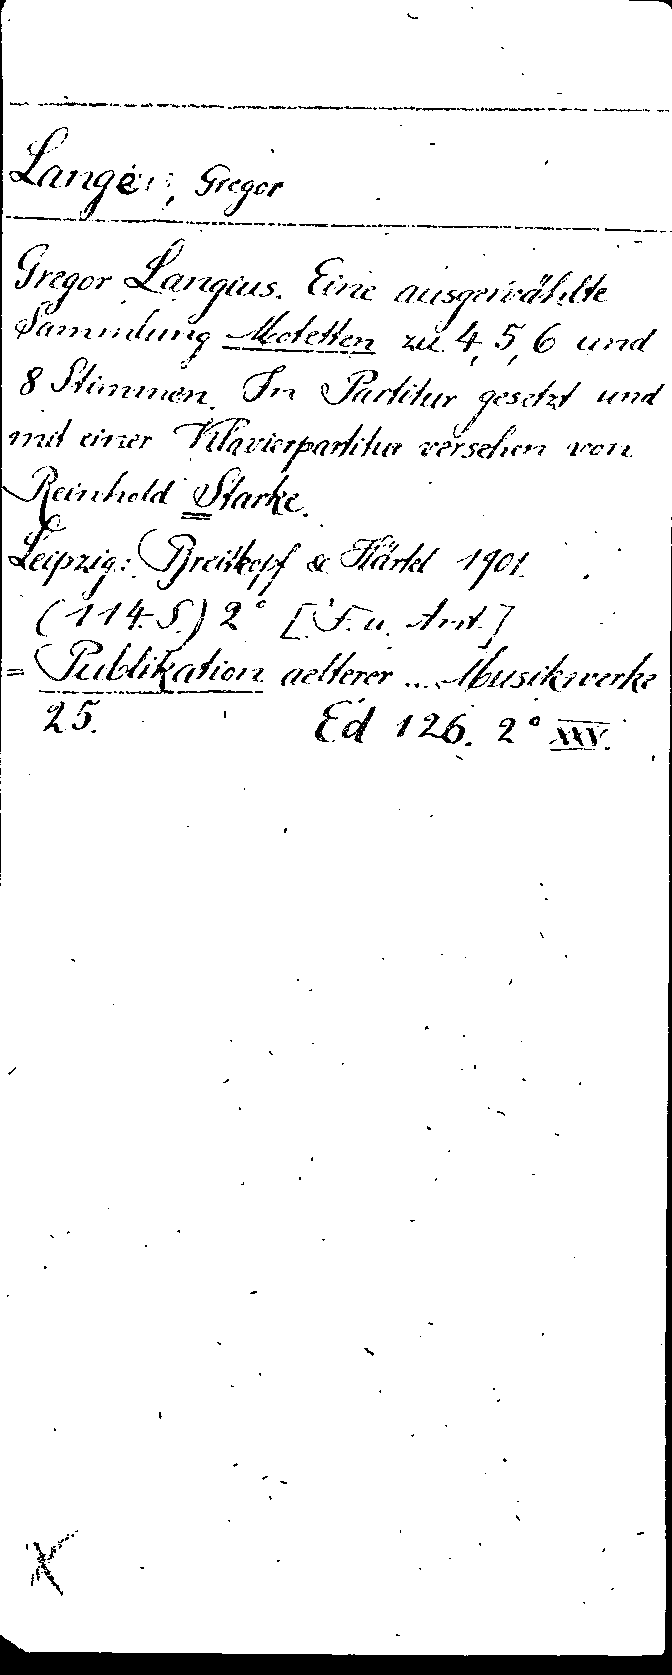 Lange, Gregor
Gregor Langius. Eine ausgewählte
Sammlung Motetten zu 4, 5, 6 und
8 Stimmen. In Partitur gesetzt und
mit einer Klavierpartitur versehen von
Reinhold Starke.
Leipzig: Breitkopf & Härtel 1901.
(114 S.) 2° [T. u. Ant.]
= Publikation aelterer ... Musikwerke
25. Ed 126. 2° XXV.